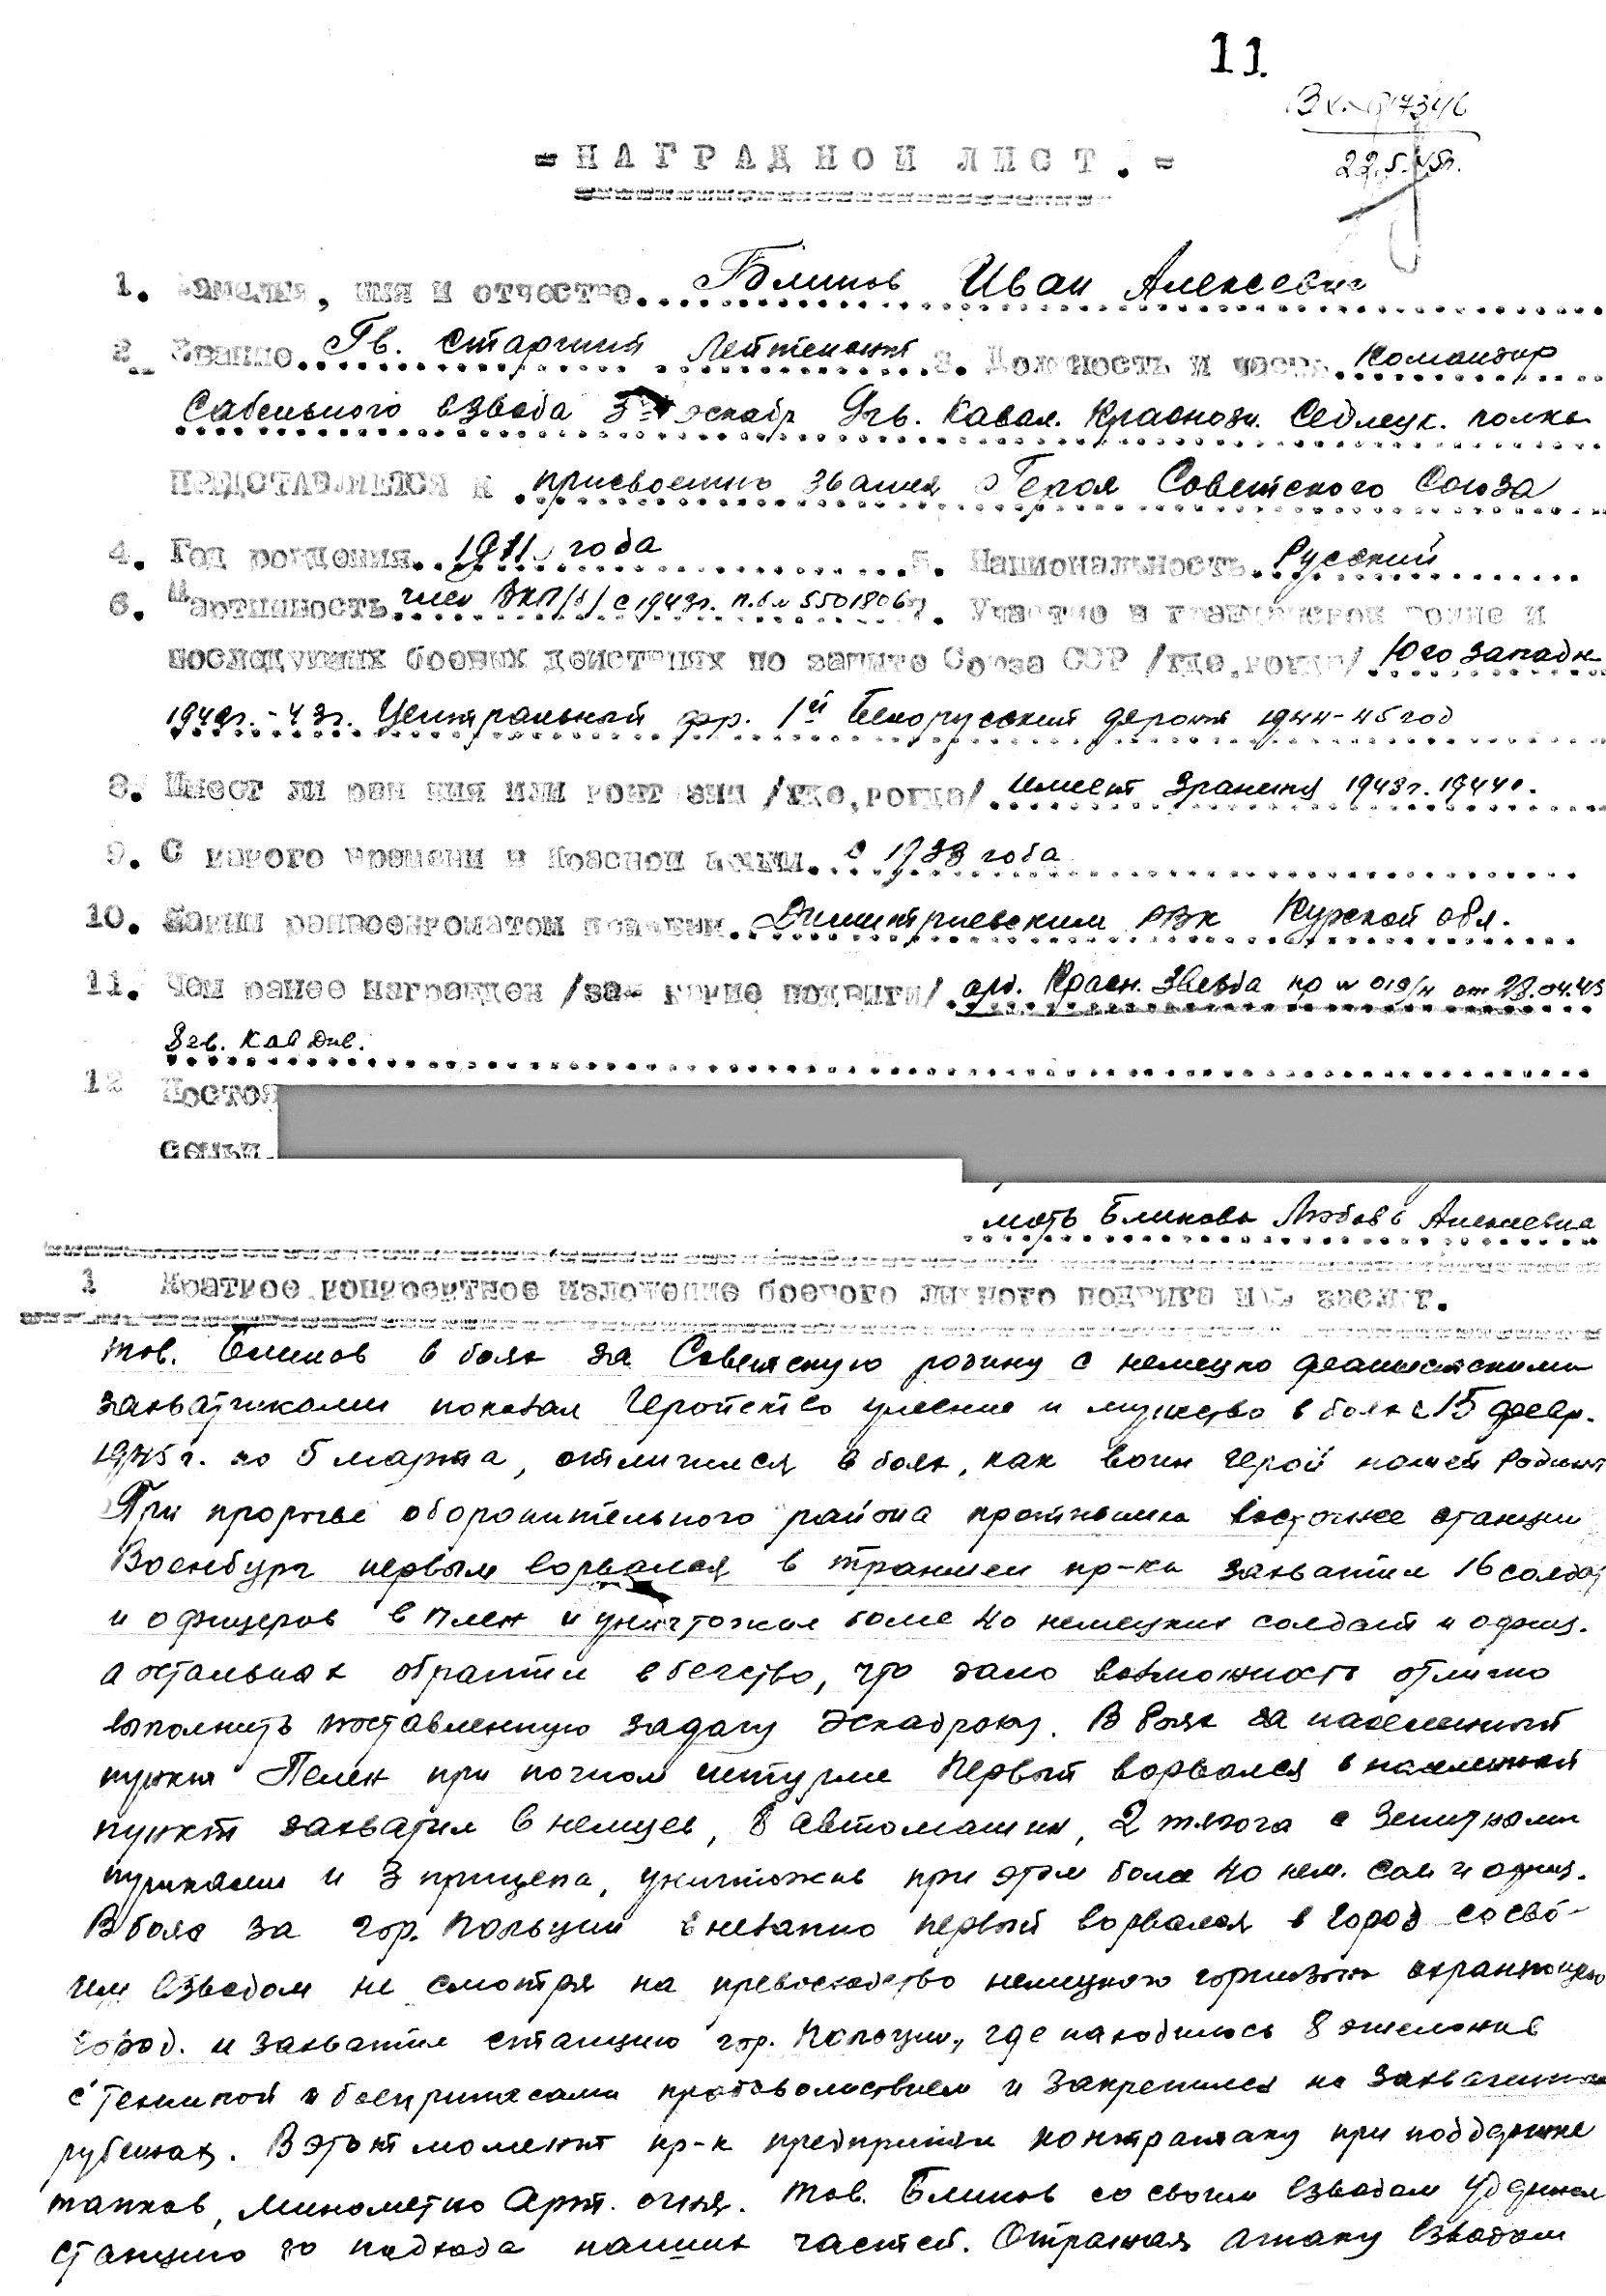 11.
22.5.45г.
- НАГРАДНОЙ ЛИСТ. -
1. Фамилия, имя и отчество. Блинов Иван Алексевич
2. Звание. Гв. старший лейтенант 3. Должность и часть. командир
сабельного взвода 3й эскадр 9гв. Кавал. Краснозн. Седлецк. полка
ПРЕДСТАВЛЯЕТСЯ К присвоению звания Героя Советского Союза
4. Год рождения. 1911 года 5. Национальность. Русский
6. Партийность член ВКП/б/ с 1943г. п.б № 5501806 7. Участие в гражданской войне и
последующих боевых действиях по защите Союза ССР /где, когда/ Юго западн
1942г.-43г. Центральный фр. 1й Белорусский фронт 1944-45 год
8. Имеет ли ранения или контузии /где, когда/ имеет 2 ранения 1943г. 1944г.
9. С какого времени в Красной армии. с 1933 года
10. Каким райвоенкоматом призван. Димитриевским РВК Курской обл.
11. Чем ранее награжден /за какие подвиги/ орд. Красн. Звезда пр № 019/н от 23.04.43
8гв. Кав див.
12 Постоя
семьи.
мать Блинова Любовь Алексевна
1 Краткое, конкретное изложение боевого личного подвига или заслуг.
тов. Блинов в боях за Советскую родину с немецко фашистскими
захватчиками показал геройство умение и мужество в боях с 15 февр.
1945 г. по 5 марта, отличился в боях, как воин герой нашей Родины
При прорыве оборонительного района противника восточнее станции
Военбург первым ворвался в траншеи пр-ка захватил 16 солдат
и офицеров в плен и уничтожил боле 40 немецких солдат и офиц.
а остальных обратил в бегство, что дало возможность отлично
выполнить поставленную задачу эскадрону. В боях за населенный
пункт Пелен при ночном штурме Первый ворвался в населенный
пункт захватил 6 немцев, 8 автомашин, 2 тягоча с зенитными
пушками и 3 прицепа, уничтожив при этом боле 40 нем. сол и офиц.
В боях за гор. Польцин внезапно первый ворвался в город со сво-
им взводом не смотря на превосходство немецкого горнизона охраняющего
город. и захватил станцию гор. Польцин, где находилось 8 эшелонов
с техникой и боеприпасами продовольствием и закрепился на захваченных
рубежах. В этот момент пр-к предпринял контратаку при поддержке
танков, минометно Арт. огня. тов. Блинов со своим взводом удержал
станцию до подхода наших частей. Отражая атаку взводом